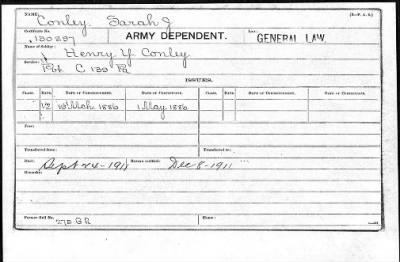 NAME: Conley, Sarah J (3-P. A. G.)
Certificate No. 130297 ARMY DEPENDENT. Law: GENERAL LAW
Name of Soldier: Henry Y. Conley
Service: Pvt C 133 Pa
ISSUES.
CLASS. RATE. DATE OF COMMENCEMENT. DATE OF CERTIFICATE. CLASS. RATE. DATE OF COMMENCEMENT. DATE OF CERTIFICATE.
12 19 Mch 1886 1 May 1886
Fees:
Transferred from:
Died: Sept 24-1911 Bureau notified: Dec 8-1911
Remarks:
Former Roll No. 275 G R Home: